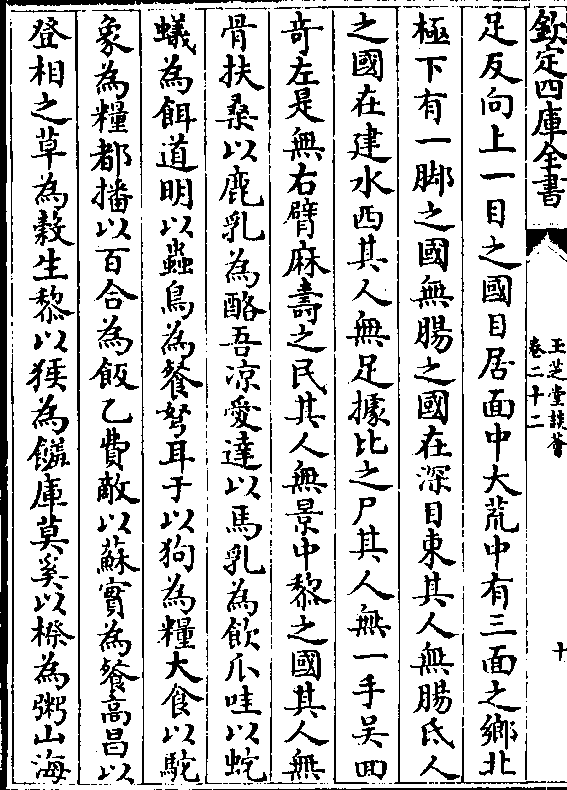 欽定四庫全書
玉芝堂談薈
卷二十二
十
足反向上一目之國目居面中大荒中有三面之鄉北
極下有一脚之國無腸之國在深目東其人無腸氐人
之國在建水西其人無足據比之尸其人無一手吴回
竒左是無右臂麻壽之民其人無景中黎之國其人無
骨扶桑以鹿乳為酪吾凉愛達以馬乳為飲爪哇以蛇
蟻為餌道明以蟲鳥為餐弩耳于以狗為糧大食以駝
象為糧都播以百合為飯乙費敵以蘇實為餐髙昌以
登相之草為穀生黎以㹶為饙庫莫奚以穄為粥山海